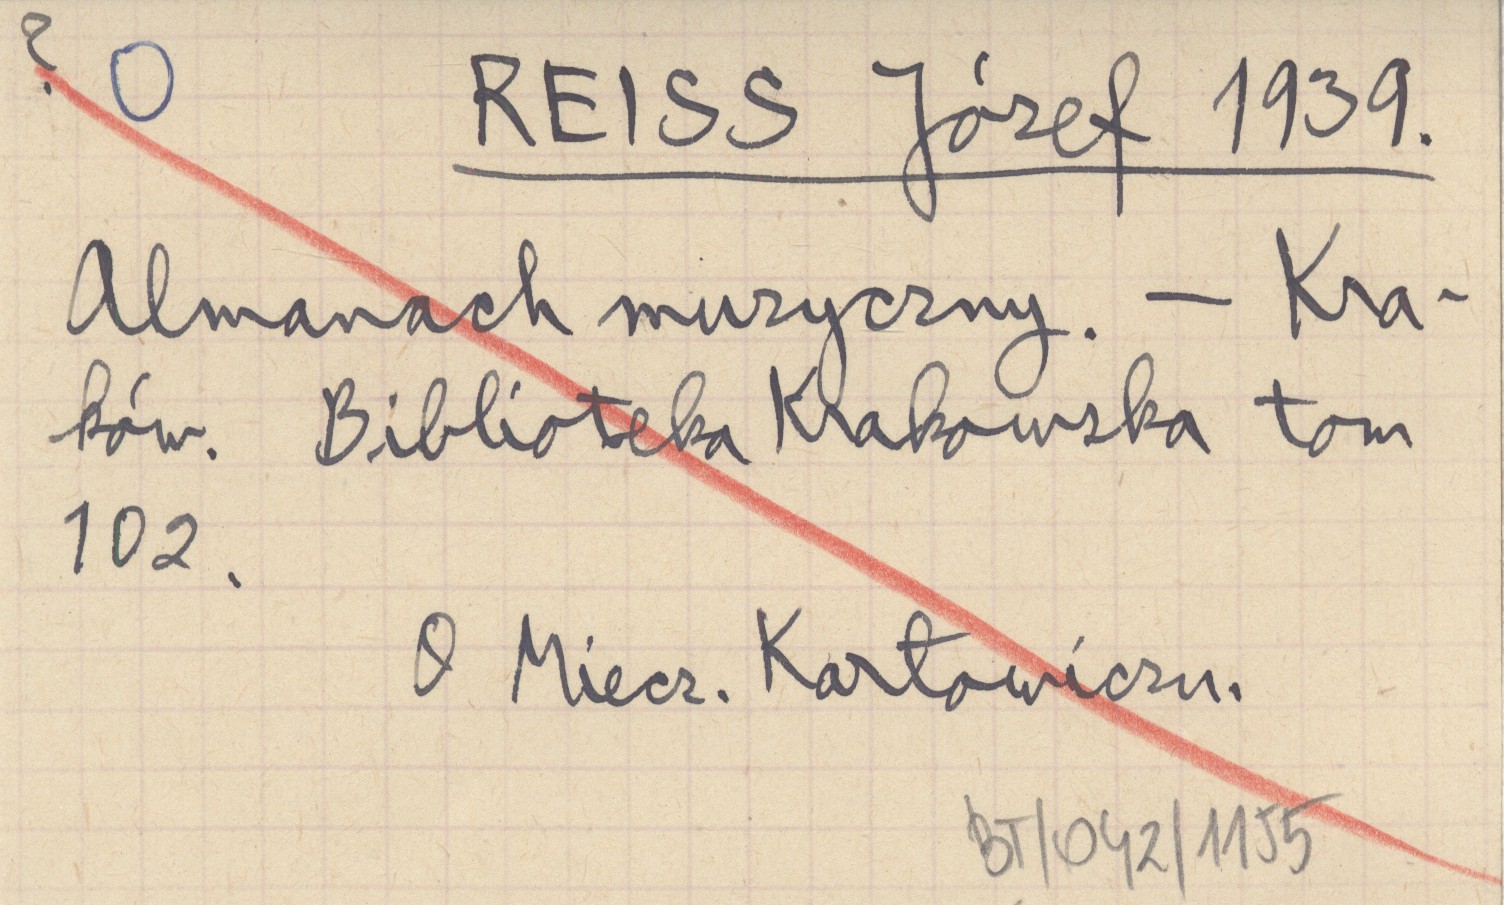 ? O
REISS Józef 1939.
Almanach muzyczny. — Kra-
ków. Biblioteka Krakowska tom
102.
O Miecz. Karłowiczu.
BT/042/1155